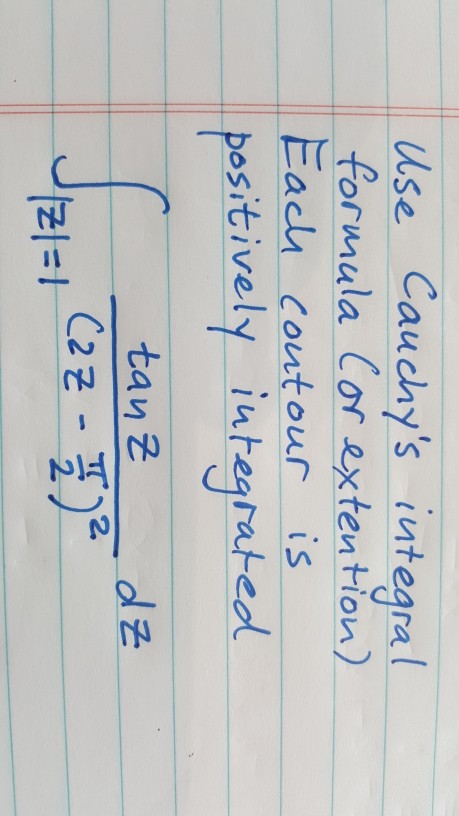 Use Cauchy's integral
formula (or extention)
Each contour is
positively integrated
∫|z|=1 tan z / (2z - π/2)² dz